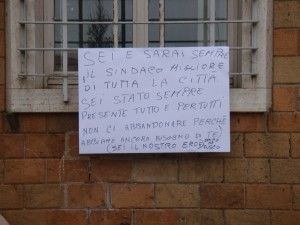 SEI E SARAI SEMPRE
IL SINDACO MIGLIORE
DI TUTTA LA CITTÀ
SEI STATO SEMPRE
PRESENTE TUTTO E PERTUTTI
NON CI ABBANDONARE PERCHÈ
ABBIAMO ANCORA BISOGNO DI TE
(SEI IL NOSTRO EROE)